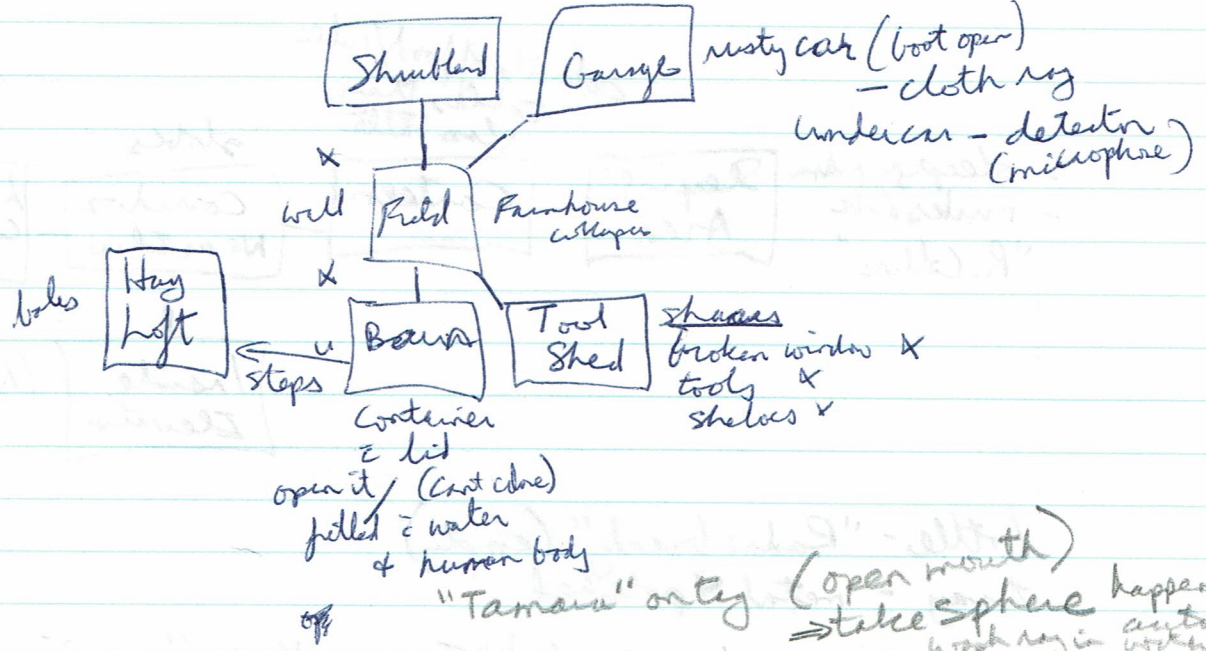 Shrubland
Garage
rusty car (boot open)
– cloth rag
under car – detector
(microphone)
x
well
Field
Farmhouse
collapses
x
Hay
Loft
bales
u
steps
Barn
Tool
Shed
broken window x
tools x
shelves x
Container
lid
open it (can't close)
filled water
& human body
"Tamara" on tag (open mouth)
⇒ take sphere happen
wash rag in